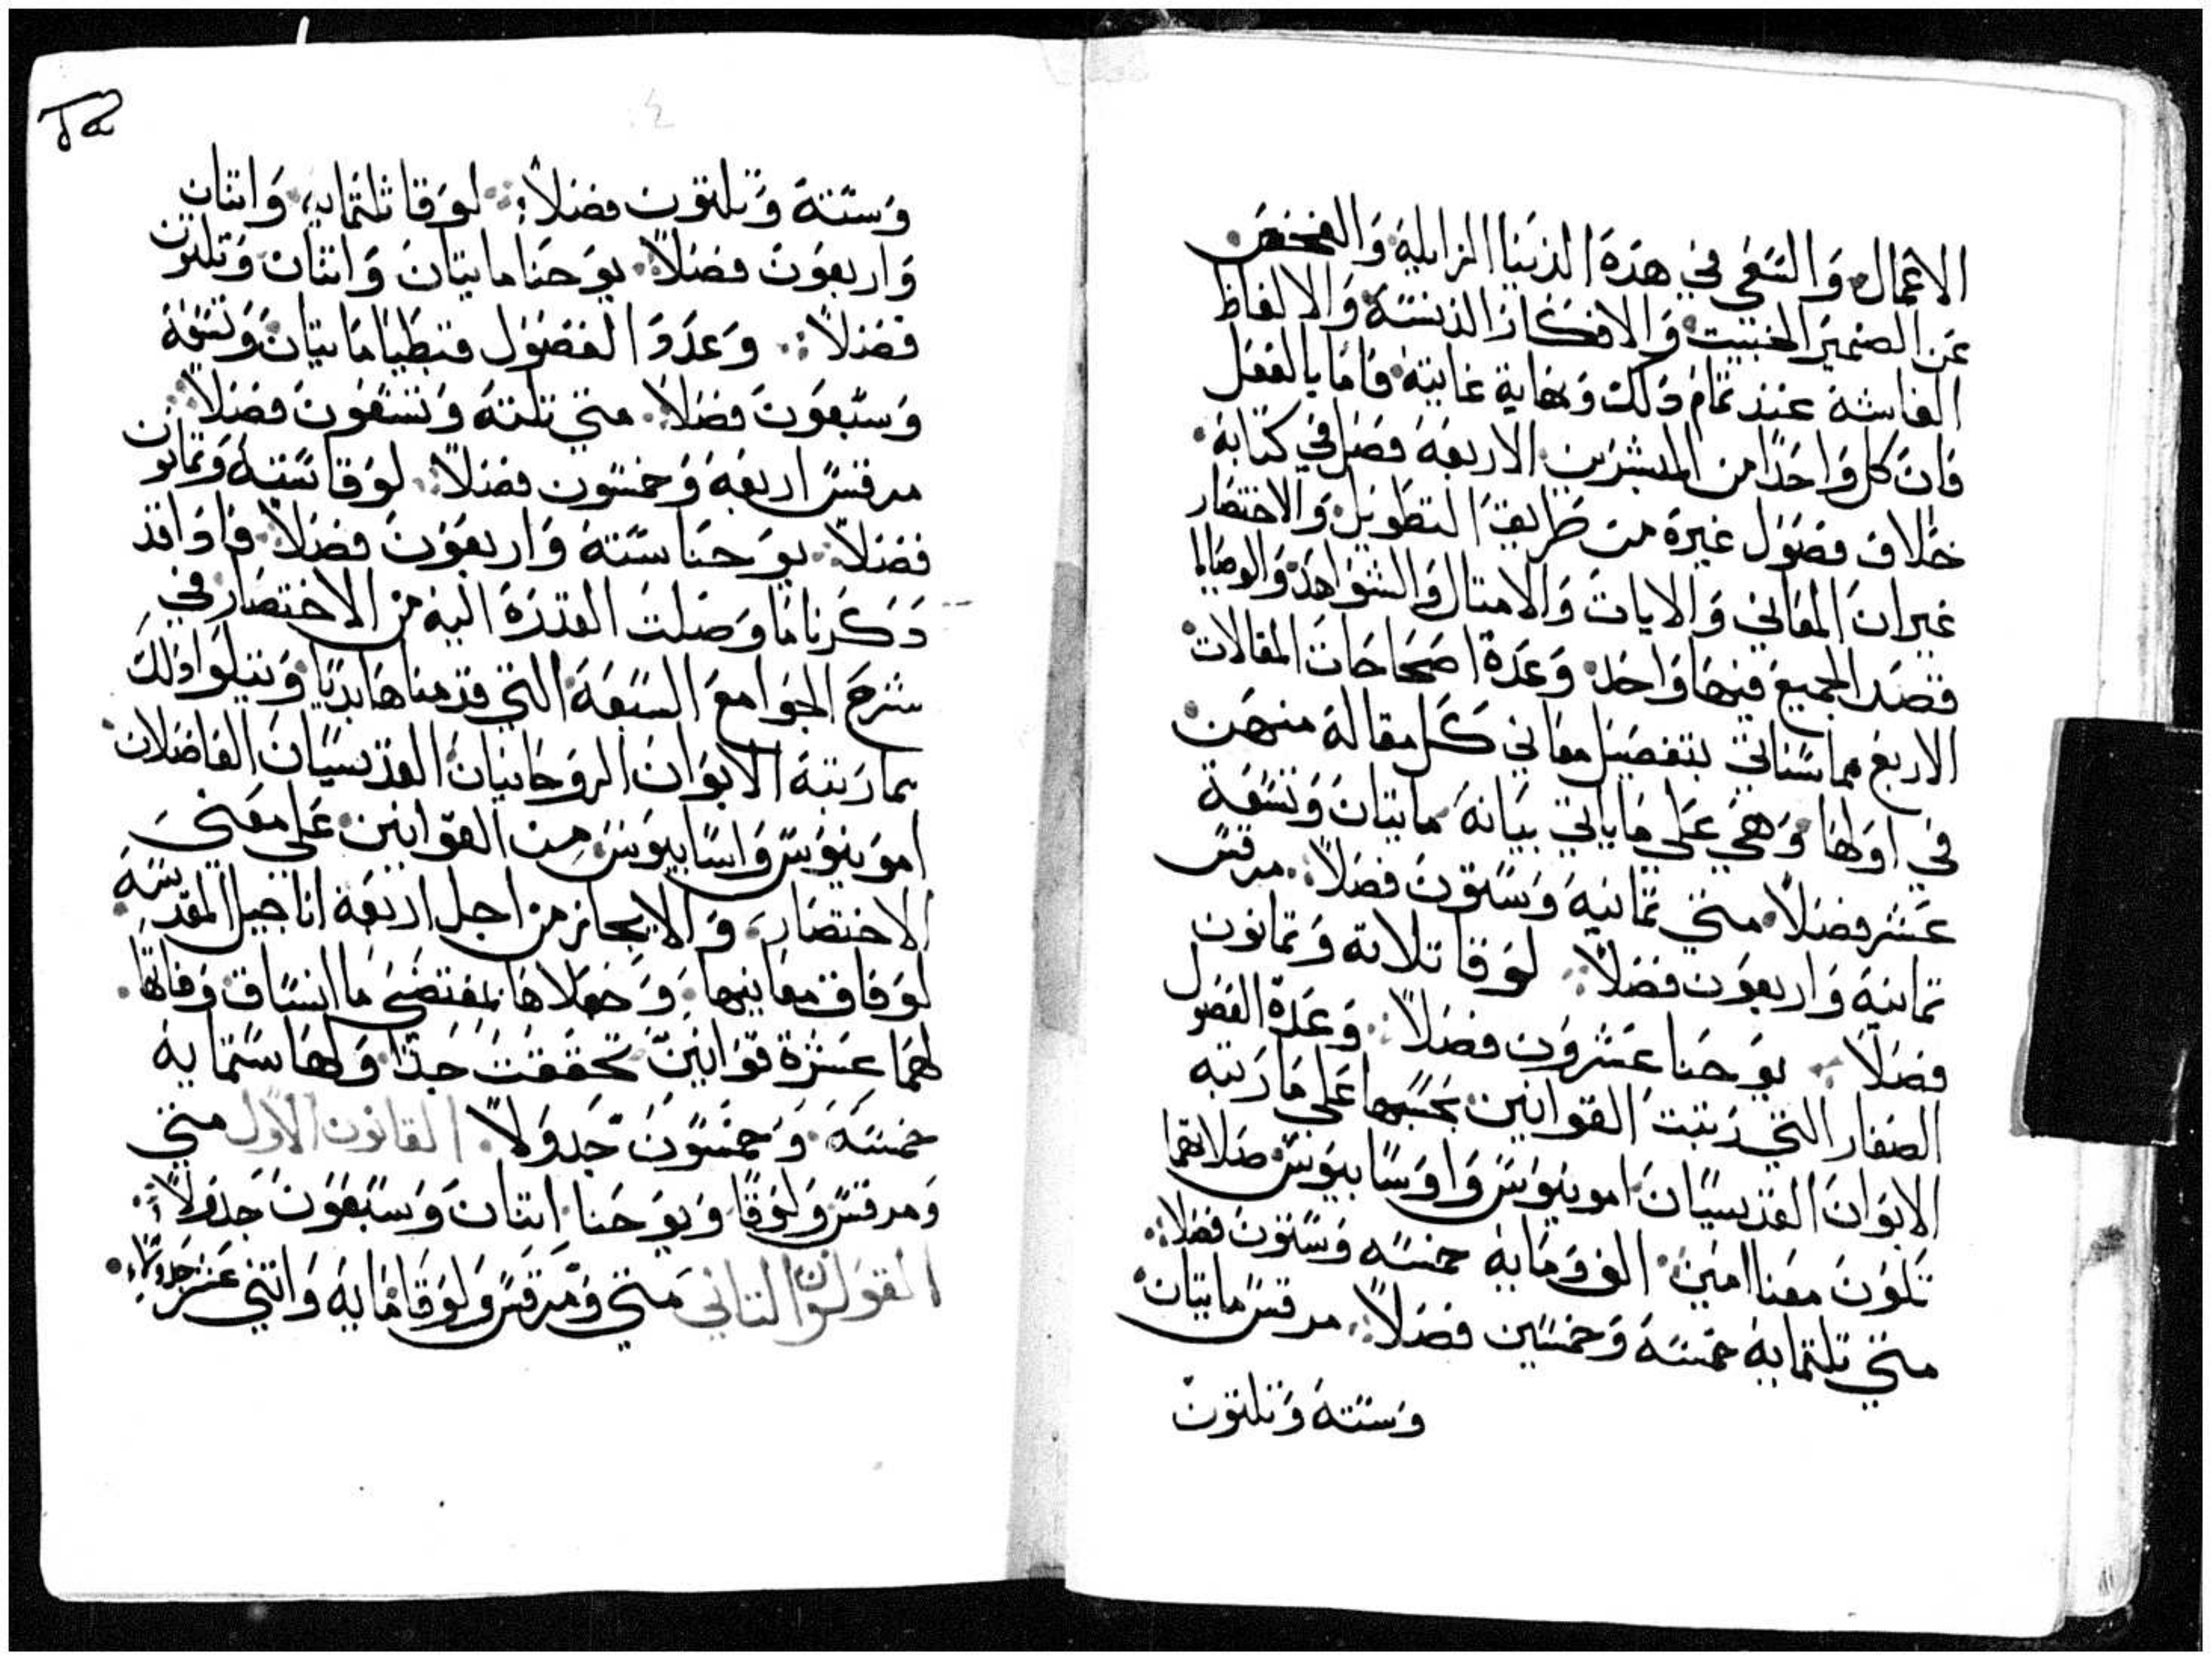 الاعمال والسعي في هذه الدنيا الزايلة والفحص
عن الضمير الخبيث والافكار الدنسة والالفاظ
الفاسثة عند تمام ذلك ونهاية غايته فاما بالفعل
فان كل واحدا من المبشرين الاربعة فصل في كتابه
خلاف فصول غيره من طريق التطويل والاختصار
غير ان المعاني والايات والامتال والشواهد والوصايا
قصد الجميع فيها واحد وعدة اصحاحات المقالات
الاربع مما سناتي بتفصيل معاني كل مقالة منهن
في اولها وهي علي ما ياتي بيانه مايتان وتسعة
عشر فصلاً متي تمانية وستون فصلاً مرقس
تمانية واربعون فصلاً لوقا تلاتة وتمانون
فصلاً يوحنا عشرون فصلاً وعدة الفصول
الصغار التي رتبت القوانين بحسبها علي ما رتبه
الابوان القديسيان امونيوس واوسابيوس صلاتهما
تكون معنا امين الف وماية خمسة وستون فصلاً
متي تلتماية خمسة وخمسين فصلاً مرقس مايتان
وستة وتلتون
وستة وتلتون فصلاً لوقا تلتماية واتنان
واربعون فصلاً يوحنا مايتان واتنان وتلتون
فصلاً وعدد الفصول قبطيا مايتان وتسعة
وسبعون فصلاً متي تلتة وتسعون فصلاً
مرقس اربعة وخمسون فصلاً لوقا ستة وتمانون
فصلاً يوحنا ستة واربعون فصلاً فاد اقد
دكرنا ما وصلت القدرة اليه من الاختصار في
شرح الجوامع السبعة التي قدمناها بديا ونتلوا دلك
بما رتبه الابوان الروحانيان القديسيان الفاضلان
امونيوس واسابيوس من القوانين علي معني
الاختصار والايجاز من اجل اربعة اناجيل المقدسة
لوفاق معانيها وجعلاها بمقتضي ما انساق وفاقها
لهما عشرة قوانين تحققت جدا ولها ستماية
خمسة وخمسون جدولاً القانون الاول متي
ومرقس ولوقا ويوحنا اتنان وسبعون جدولاً
القولون التاني متي ومرقس ولوقا ماية واتني عشر جدولاً